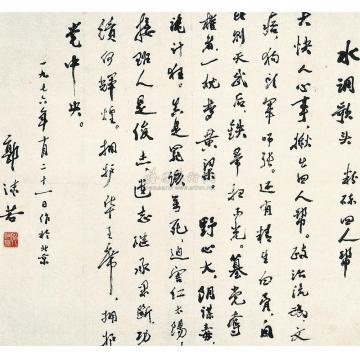 水调歌头 粉碎四人帮
大快人心事，揪出四人帮。政治流氓文
痞，狗头军师张。还有精生白骨，自
比则天武后，铁帚扫而光。篡党夺
权者，一枕梦黄粱。 野心大，阴谋毒，
诡计狂。真是罪该万死，迫害仁太阳。
接班人是俊杰，遗志继承果断，功
绩何辉煌。拥护华主席，拥护
党中央。
一九七六年十月二十一日作于北京
郭沫若